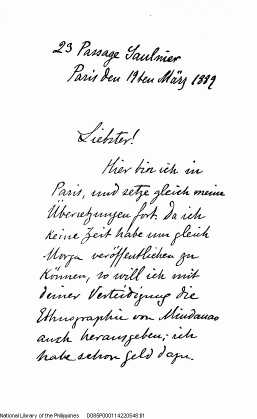 23 Passage Saulnier
Paris den 19ten März 1889
Liebster!
Hier bin ich in
Paris, und setze gleich meine
Übersetzungen fort. Da ich
keine Zeit habe um gleich
Morga veröffentlichen zu
können, so will ich mit
deiner Verteidigung die
Ethnographie von Mindanao
auch herausgeben; ich
habe schon Geld dazu.
National Library of the Philippines D085P000114220548:81